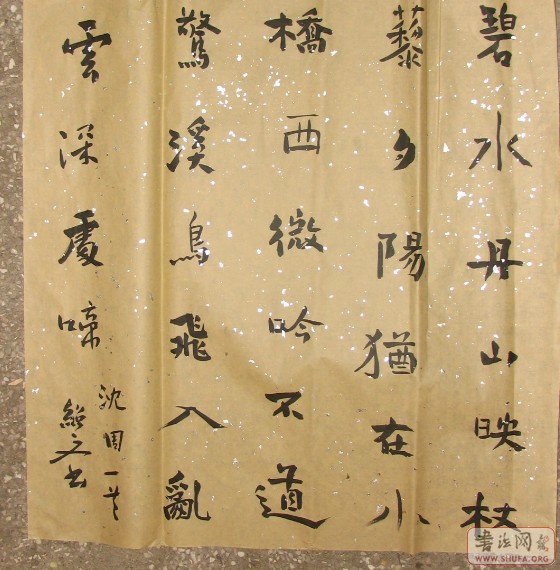 碧水丹山映杖
藜夕陽猶在小
橋西微吟不道
驚溪鳥飛入亂
雲深處啼
沈周一首
紹文書
書法网
WWW.SHUFA.ORG